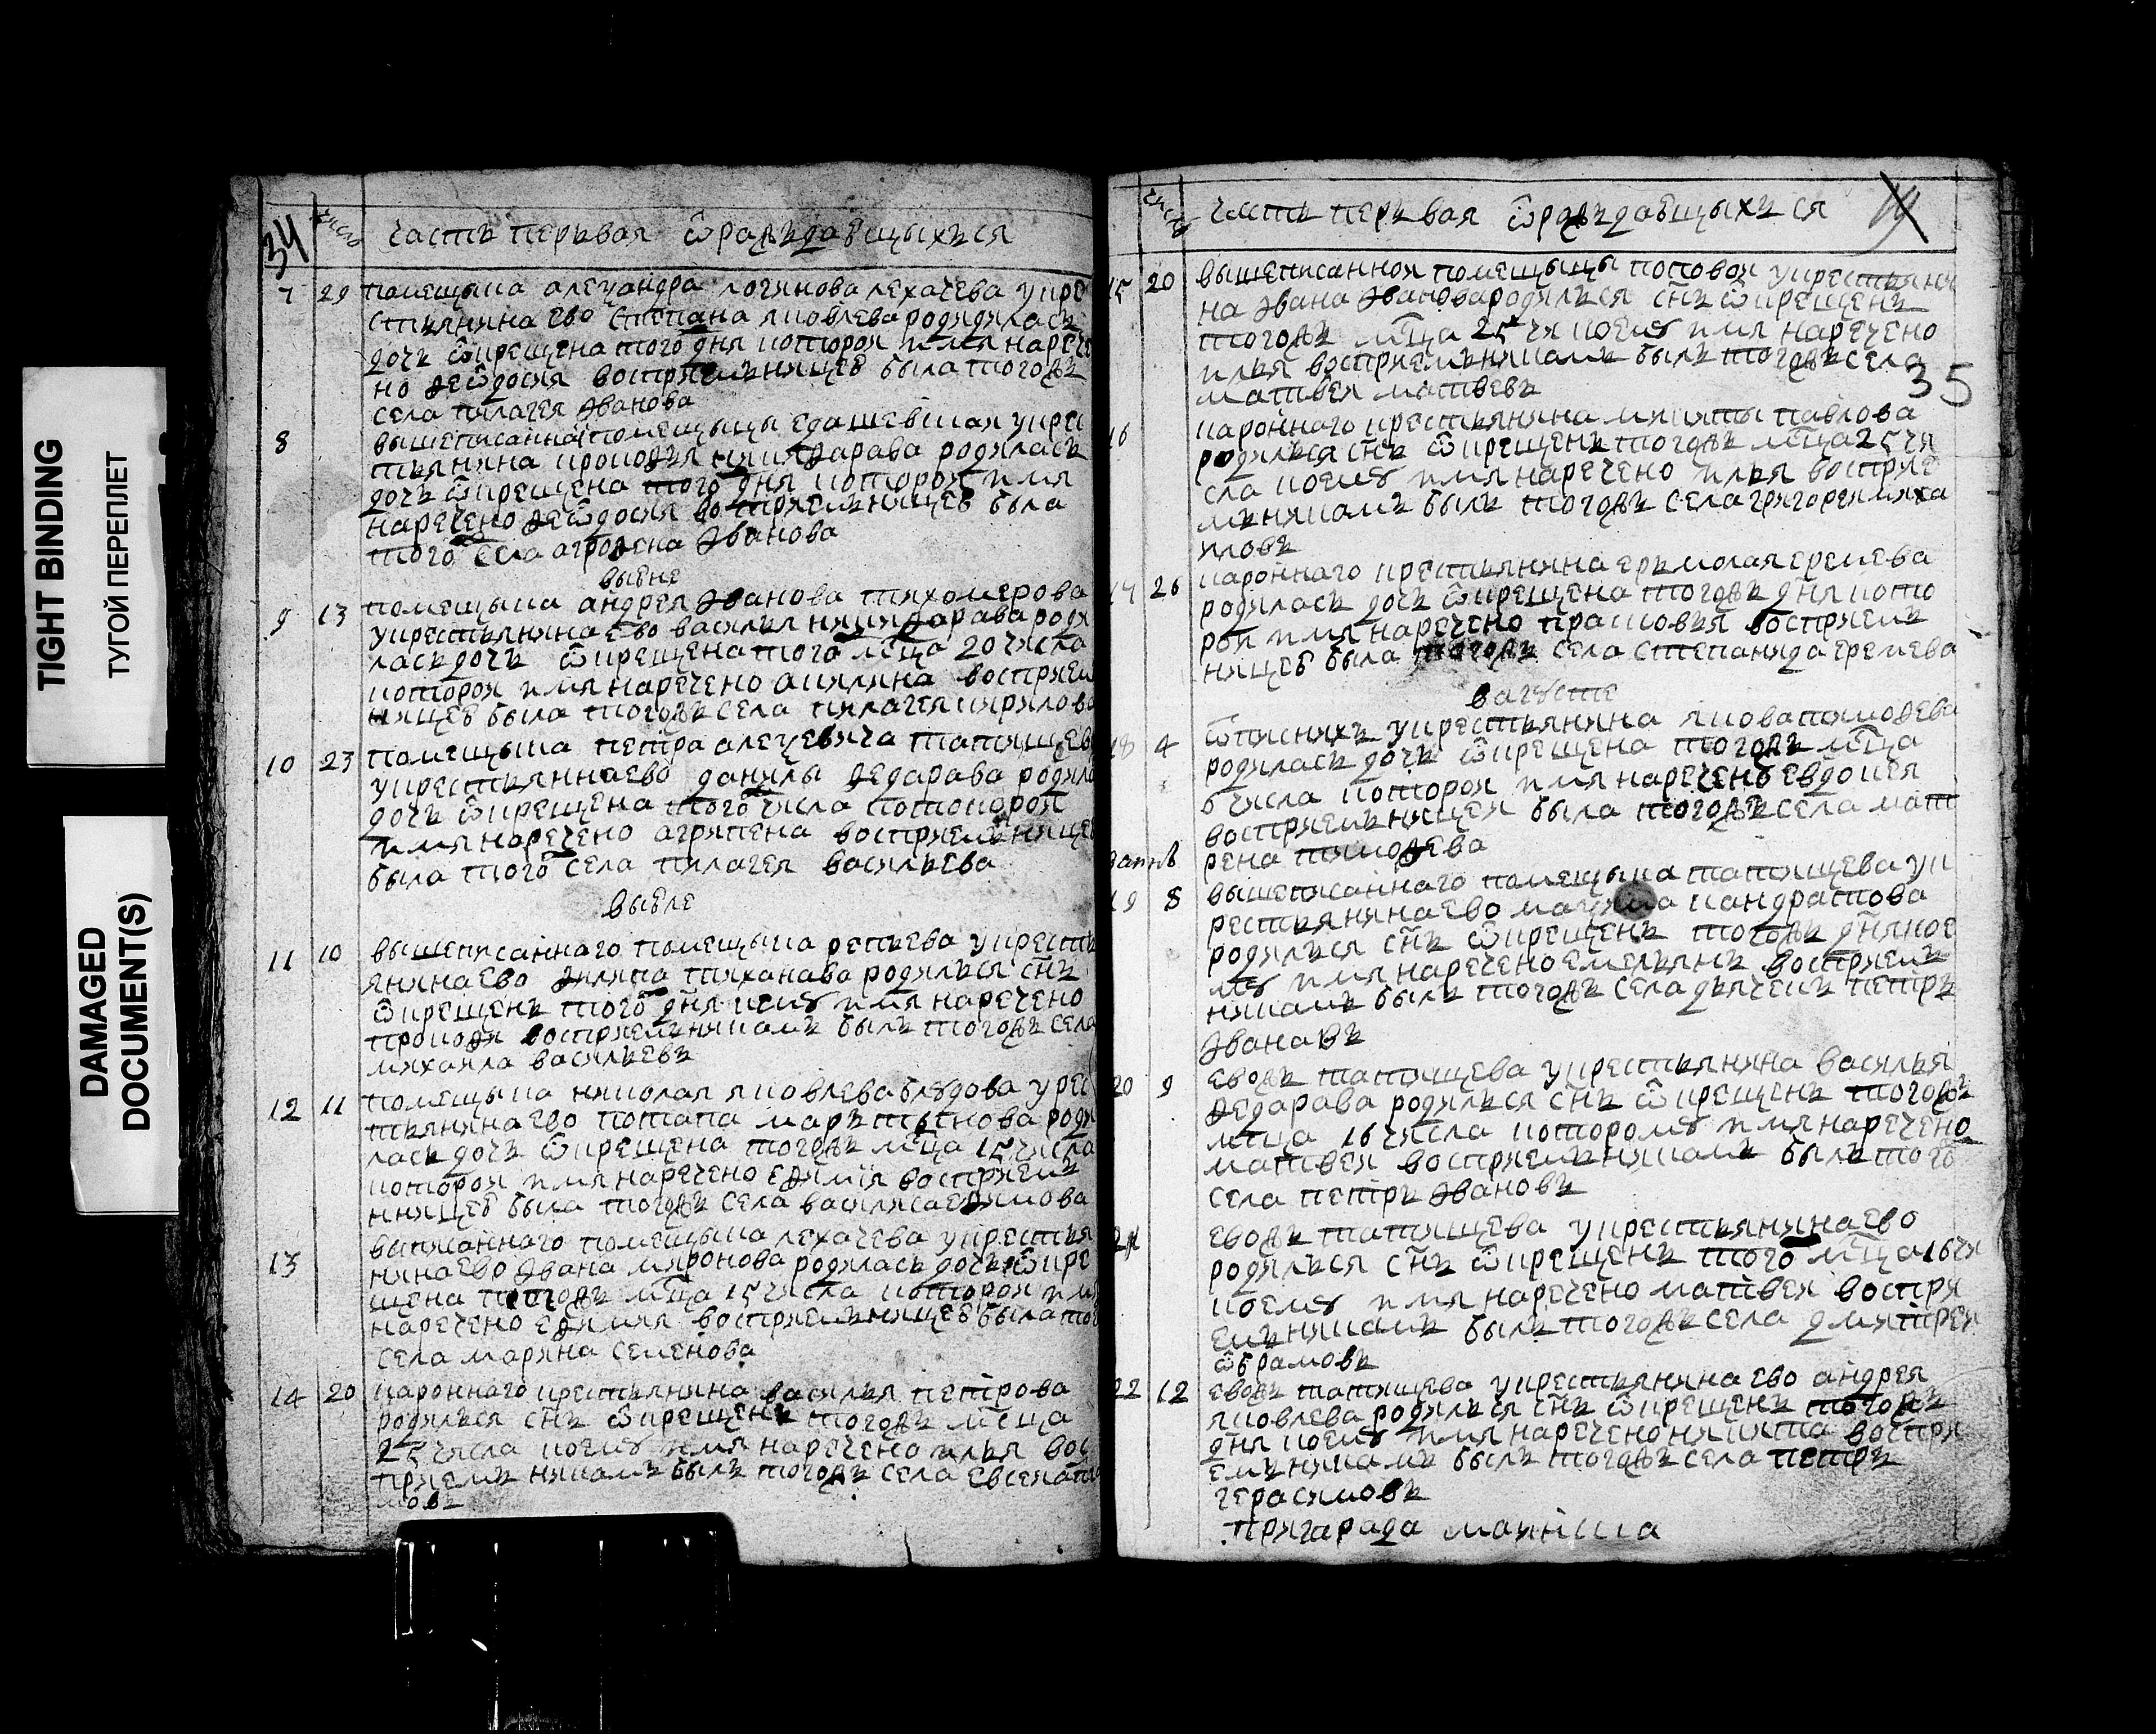 TIGHT BINDING
ТУГОЙ ПЕРЕПЛЕТ
DAMAGED
DOCUMENT(S)
ТУГОЙ
34
число
часть перьвая ѿ раждавщыхъся
7 29 помещыка алеѯандра логинова лехачева укре
стьянина ево степана яковлева родидилась
дочь ѿкрещена того дня которои имя нарече
но ѳеѡдосия восприемьницею была тогожъ
села пилагея иванова
8 вышеписаннаи помещыцы едашевъскаи укрес
тьянина прокоѳья никиѳарава родилась
дочь ѿкрещена того дня которои имя
наречено ѳеѡдосия восприемьницею была
того села агроѳена иванова
выюне
9 13 помещыка андрея иванова тихомерова
укрестьянина ево василья никиѳарава роди
лась дочь ѿкрещена того мца 20 числа
которои имя наречено акилина восприем
ницею была тогожъ села пилагея кирилова
10 23 помещыка петра алеѯевича татищева
укрестьянинаево данилы ѳедарава родила
дочь ѿкрещена того числа котокорои
имя наречено агрипена восприемьнице
была того села пилагея васильева
выюле
11 10 вышеписаннаго помещыка репьева укресть
янина ево ѳилипа тиханава родилься снъ
ѿкрещенъ того дня иему имя наречено
прокоѳи восприемьникамъ былъ тогожъ села
михаила васильевъ
12 11 помещыка николая яковлева блудова укрес
тьянина ево потапа маръ тынова роди
лась дочь ѿкрещена тогожъ мца 15 числа
которои имя наречено еѳимiя восприемъ
нницею была тогожъ села василиса еѳимова
13 выписаннаго помещыка лехачева укрестья
нинаево ивана миронова родилась дочь ѿкре
щена тогожъ мца 15 числа которои имя
наречено еѳимия восприемьницею была того
села марина семенова
14 20 кароннаго крестьянина василья петрова
родилься снъ ѿкрещенъ тогожъ мсца
25 числа коему имя наречено илья вос
приемъ никамъ былъ тогожъ села евсеи
мовъ
число
часть перьвая ѿ раждавщыхъся
19
15 20 вышеписаннои помещыцы поповои укрестьяни
на ивана иванова родилься снъ ѿкрещенъ
тогожъ мца 25 чи коему имя наречено
илья восприемьникамъ былъ тогожъ села
матвеи матвевъ
35
16 кароннаго крестьянина микиты павлова
родилься снъ ѿкрещенъ тогожъ мца 25 чи
сла коему имя наречено илья восприе
мьникамъ былъ тогожъ села григореи миха
иловъ
17 26 кароннаго крестьянина еръмолая еремева
родилась дочь ѿкрещена тогожъ дня кото
рои имя наречено прасковья восприемъ
ницею была тогожъ села степанида еремева
вагусте
18 4 укрестьянина якова тимоѳева
родилась дочь ѿкрещена тогожъ мца
6 числа которои имя наречено евдокея
восприемьницеи была тогожъ села мат
рена тимоѳева
19 8 вышеписаннаго помещыка татищева ук
рестьянинаево маѯима кандратова
родилься снъ ѿкрещенъ тогожъ дня кое
му имя наречено емельянъ восприемъ
никамъ былъ тогожъ села дьячекъ петръ
иванавъ
20 9 евожъ татищева укрестьянина василья
ѳедарава родилься снъ ѿкрещенъ тогожъ
мтца 16 числа котораму имя наречено
матвеи восприемьникамъ былъ того
села петръ ивановъ
21 евожъ татищева укрестьянина ево
родилься снъ ѿкрещенъ того мтца 16 чи
коему имя наречено матвеи воспри
емьникамъ былъ тогожъ села дмитреи
ѡбрамовъ
22 12 евожъ татищева укрестьянина ево андрея
яковлева родилься снъ ѿкрещенъ тогожъ
дня коему имя наречено никита воспри
емьникамъ былъ тогожъ села петръ
герасимовъ